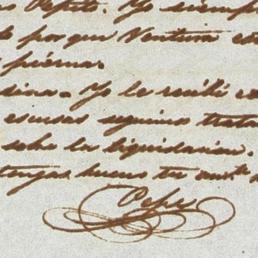 Pepito. Yo siempr
de paz que Ventura est
pierna.
sina. Yo le recibí
escusas seguimos trata
sobre la liquidacion.
tengas buena tu
Pepe